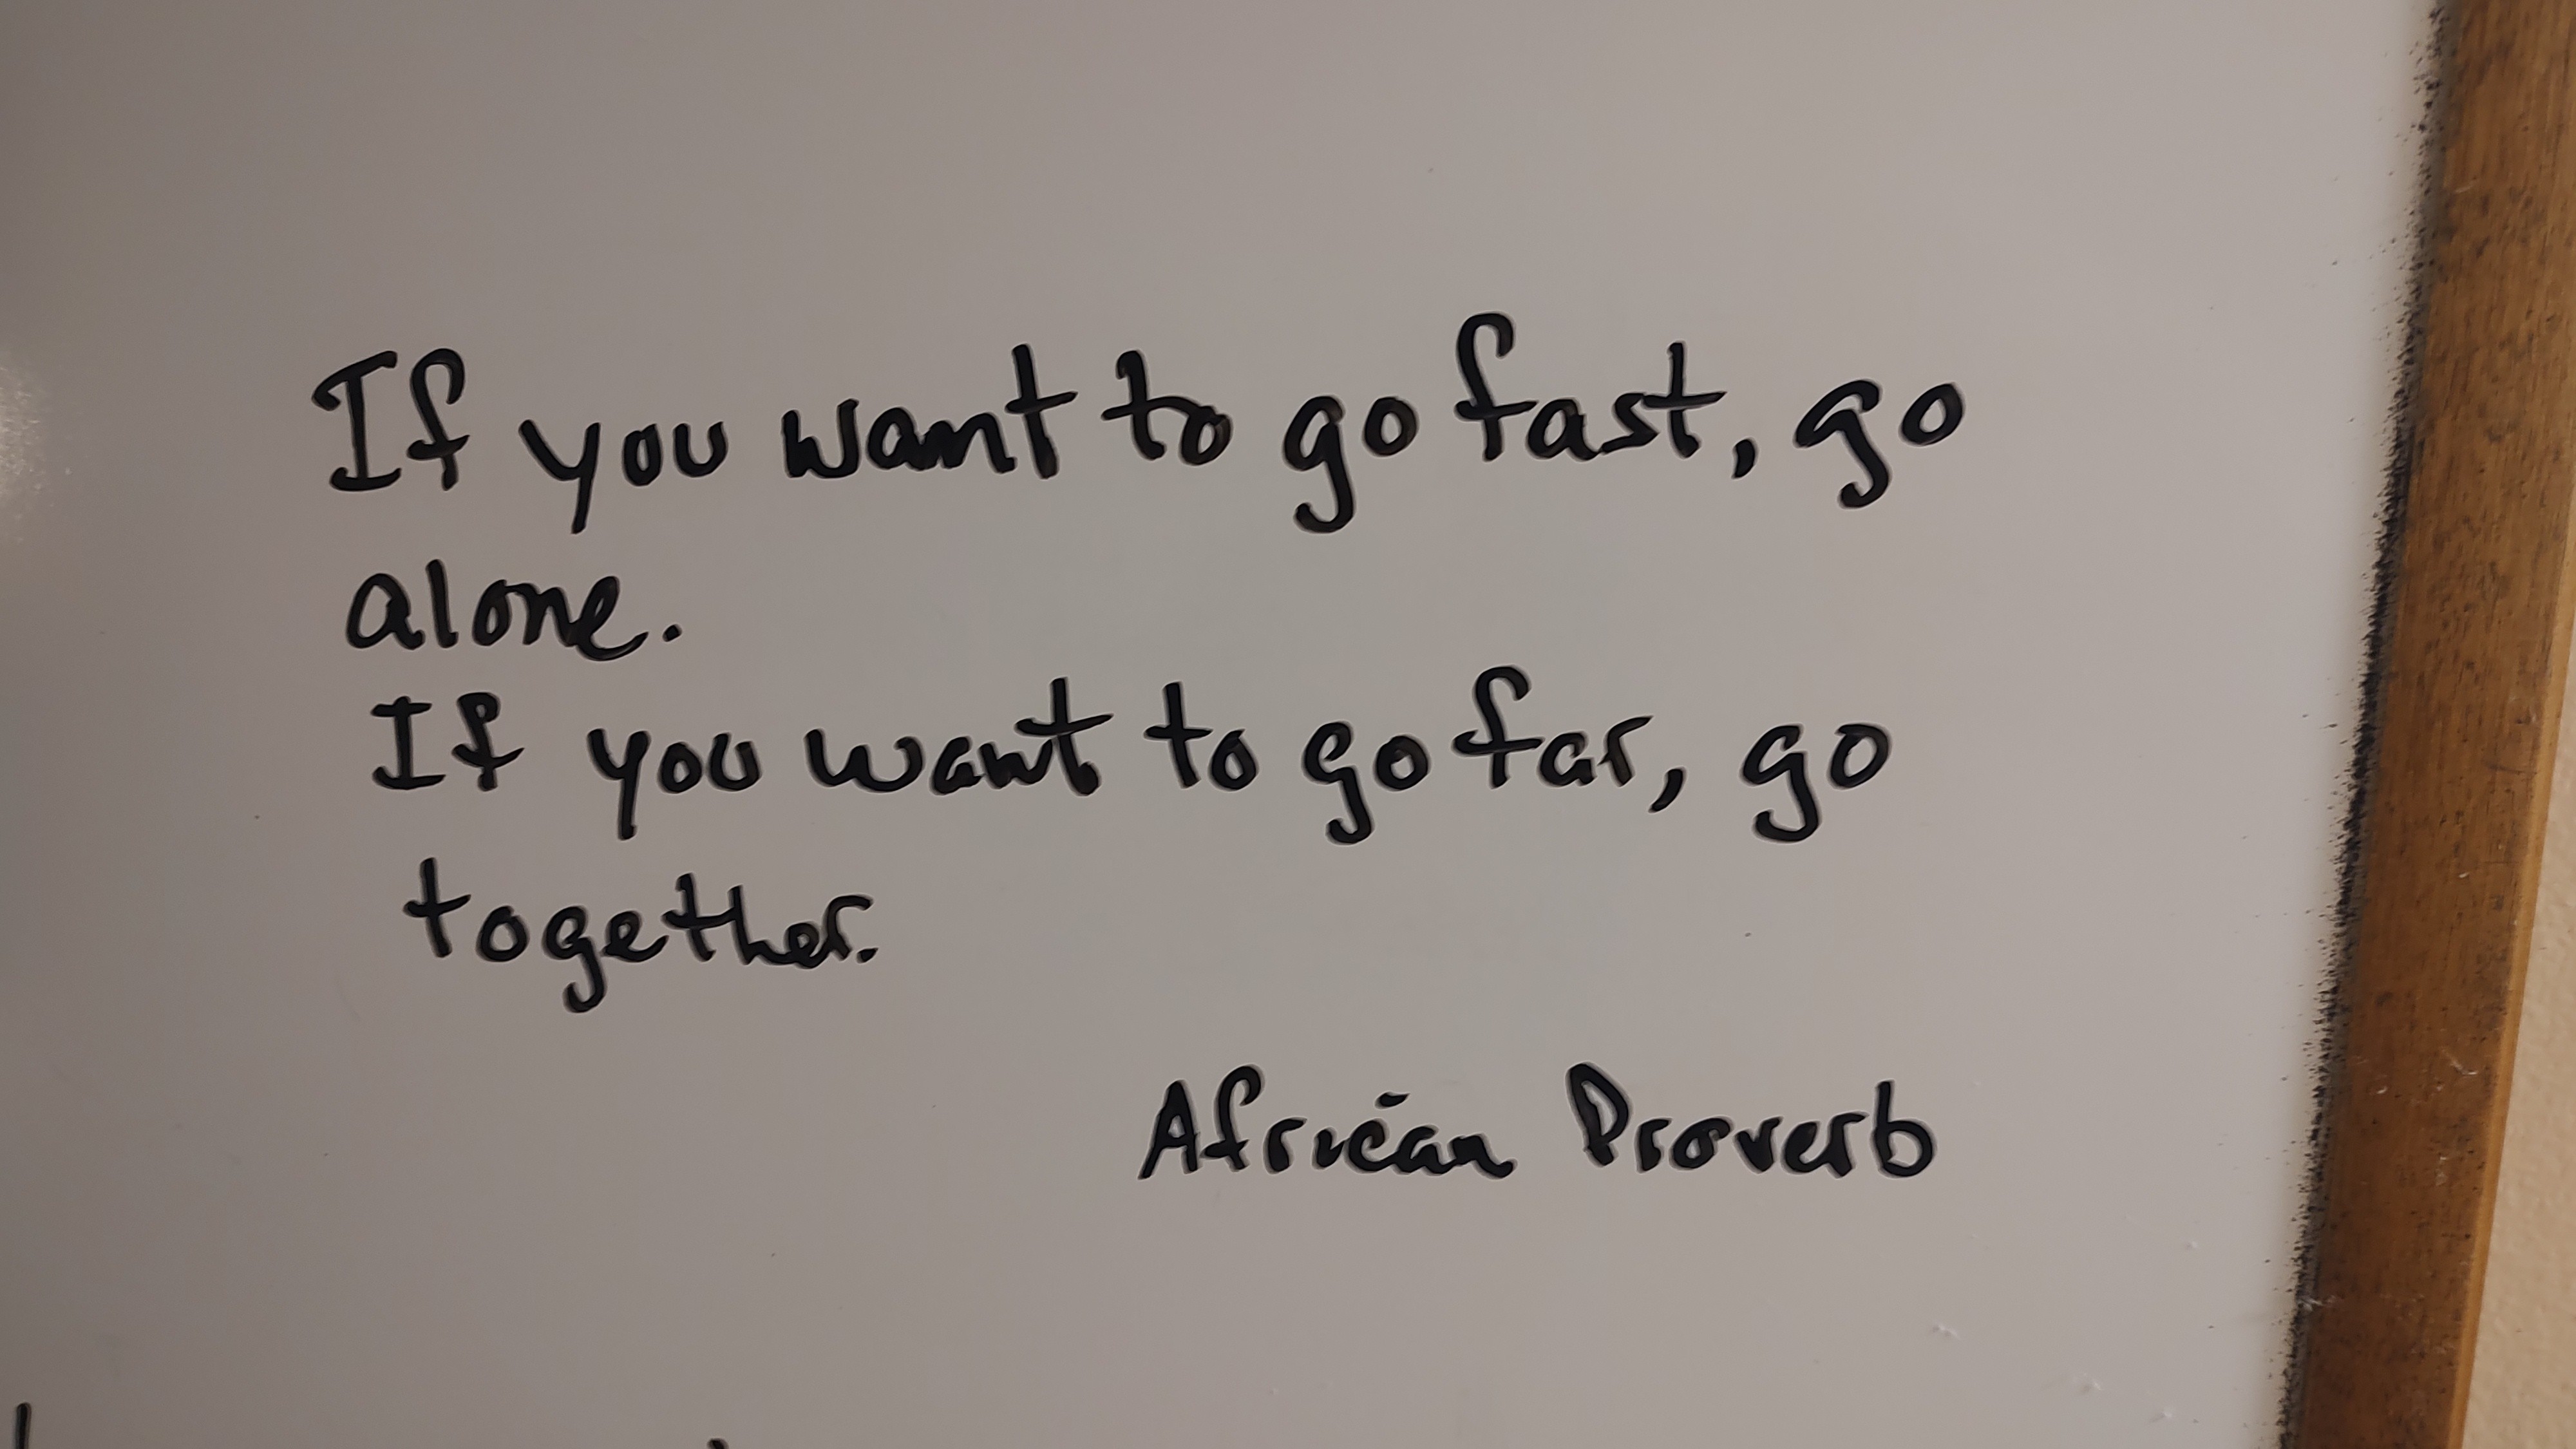 If you want to go fast, go
alone.
If you want to go far, go
together.
African Proverb